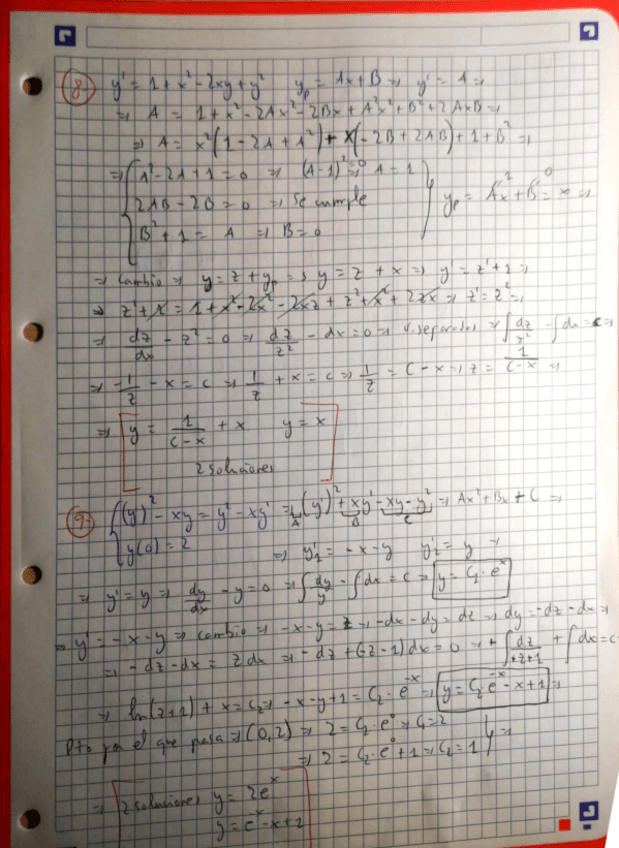 8) y' = 1 + x² - 2xy + y²   y_p = Ax + B ⇒ y' = A ⇒
⇒ A = 1 + x² - 2Ax² - 2Bx + A²x² + B² + 2AxB ⇒
⇒ A = x²(1 - 2A + A²) + x(-2B + 2AB) + 1 + B² ⇒
⇒ { A² - 2A + 1 = 0 ⇒ (A-1)² = 0 ⇒ A = 1
2AB - 2B = 0 ⇒ Se cumple } y_p = Ax + B = x ⇒
B² + 1 = A ⇒ B = 0
⇒ Cambio ⇒ y = z + y_p ⇒ y = z + x ⇒ y' = z' + 1 ⇒
⇒ z' + 1 = 1 + x² - 2x² - 2xz + z² + x² + 2zx ⇒ z' = z² ⇒
⇒ dz/dx - z² = 0 ⇒ dz/z² - dx = 0 ⇒ V. separadas ⇒ ∫ dz/z² - ∫ dx = c ⇒
⇒ -1/z - x = c ⇒ 1/z + x = c ⇒ 1/z = c - x ⇒ z = 1/(c-x) ⇒
⇒ [ y = 1/(c-x) + x   y = x
2 soluciones ]
9) { (y')² - xy = y² - xy' ⇒ (y')² + xy' - xy - y² ⇒ Ax² + Bx + C ⇒
A B C
y(0) = 2   ⇒ y'₁ = -x - y   y'₂ = y ⇒
⇒ y' = y ⇒ dy/dx - y = 0 ⇒ ∫ dy/y - ∫ dx = c ⇒ y = C₁·eˣ
⇒ y' = -x - y ⇒ cambio ⇒ -x - y = z ⇒ -dx - dy = dz ⇒ dy = -dz - dx ⇒
⇒ -dz - dx = z dx ⇒ -dz + (-z - 1)dx = 0 ⇒ + ∫ dz/(+z+1) + ∫ dx = c ⇒
⇒ ln(z+1) + x = C₂ ⇒ -x - y + 1 = C₂·e⁻ˣ ⇒ y = C₂e⁻ˣ - x + 1 ⇒
Pto por el que pasa ⇒ (0,2) ⇒ 2 = C₁·e⁰ ⇒ C₁ = 2
⇒ 2 = C₂·e⁰ + 1 ⇒ C₂ = 1 } ⇒
⇒ [ 2 soluciones y = 2eˣ
y = e⁻ˣ - x + 1 ]